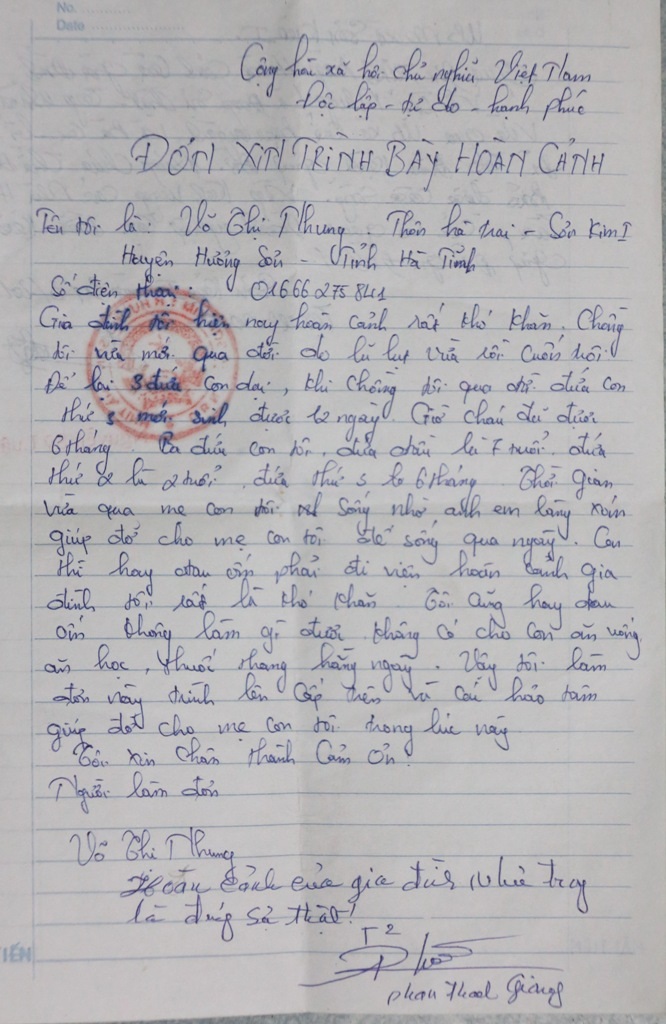 No.
Date
Cộng hòa xã hội chủ nghĩa Việt Nam
Độc lập - tự do - hạnh phúc
ĐƠN XIN TRÌNH BÀY HOÀN CẢNH
Tên tôi là: Võ Thị Nhung. Thôn hà trai - Sơn Kim I
Huyện Hương Sơn - Tỉnh Hà Tĩnh
Số điện thoại: 01666275841
Gia đình tôi hiện nay hoàn cảnh rất khó khăn. Chồng
tôi vừa mới qua đời do lũ lụt vừa rồi cuốn trôi.
Để lại 3 đứa con dại, khi chồng tôi qua đời đứa con
thứ 3 mới sinh được 12 ngày. Giờ cháu đã được
6 tháng. Ba đứa con tôi, đứa đầu là 7 tuổi. đứa
thứ 2 là 2 tuổi. đứa thứ 3 là 6 tháng. Thời gian
vừa qua mẹ con tôi sống nhờ anh em làng xóm
giúp đỡ cho mẹ con tôi để sống qua ngày. Con
thì hay đau ốm phải đi viện hoàn cảnh gia
đình tôi rất là khó khăn. Tôi cũng hay đau
ốm không làm gì được. không có cho con ăn uống
ăn học, thuốc thang hằng ngày. Vậy tôi làm
đơn này trình lên cấp trên và các hảo tâm
giúp đỡ cho mẹ con tôi trong lúc này
Tôi xin chân thành cảm ơn!
Người làm đơn
Võ Thị Nhung
Hoàn cảnh của gia đình như tray
là đúng sả thật!
T2
phan thanh Giang
TIẾN